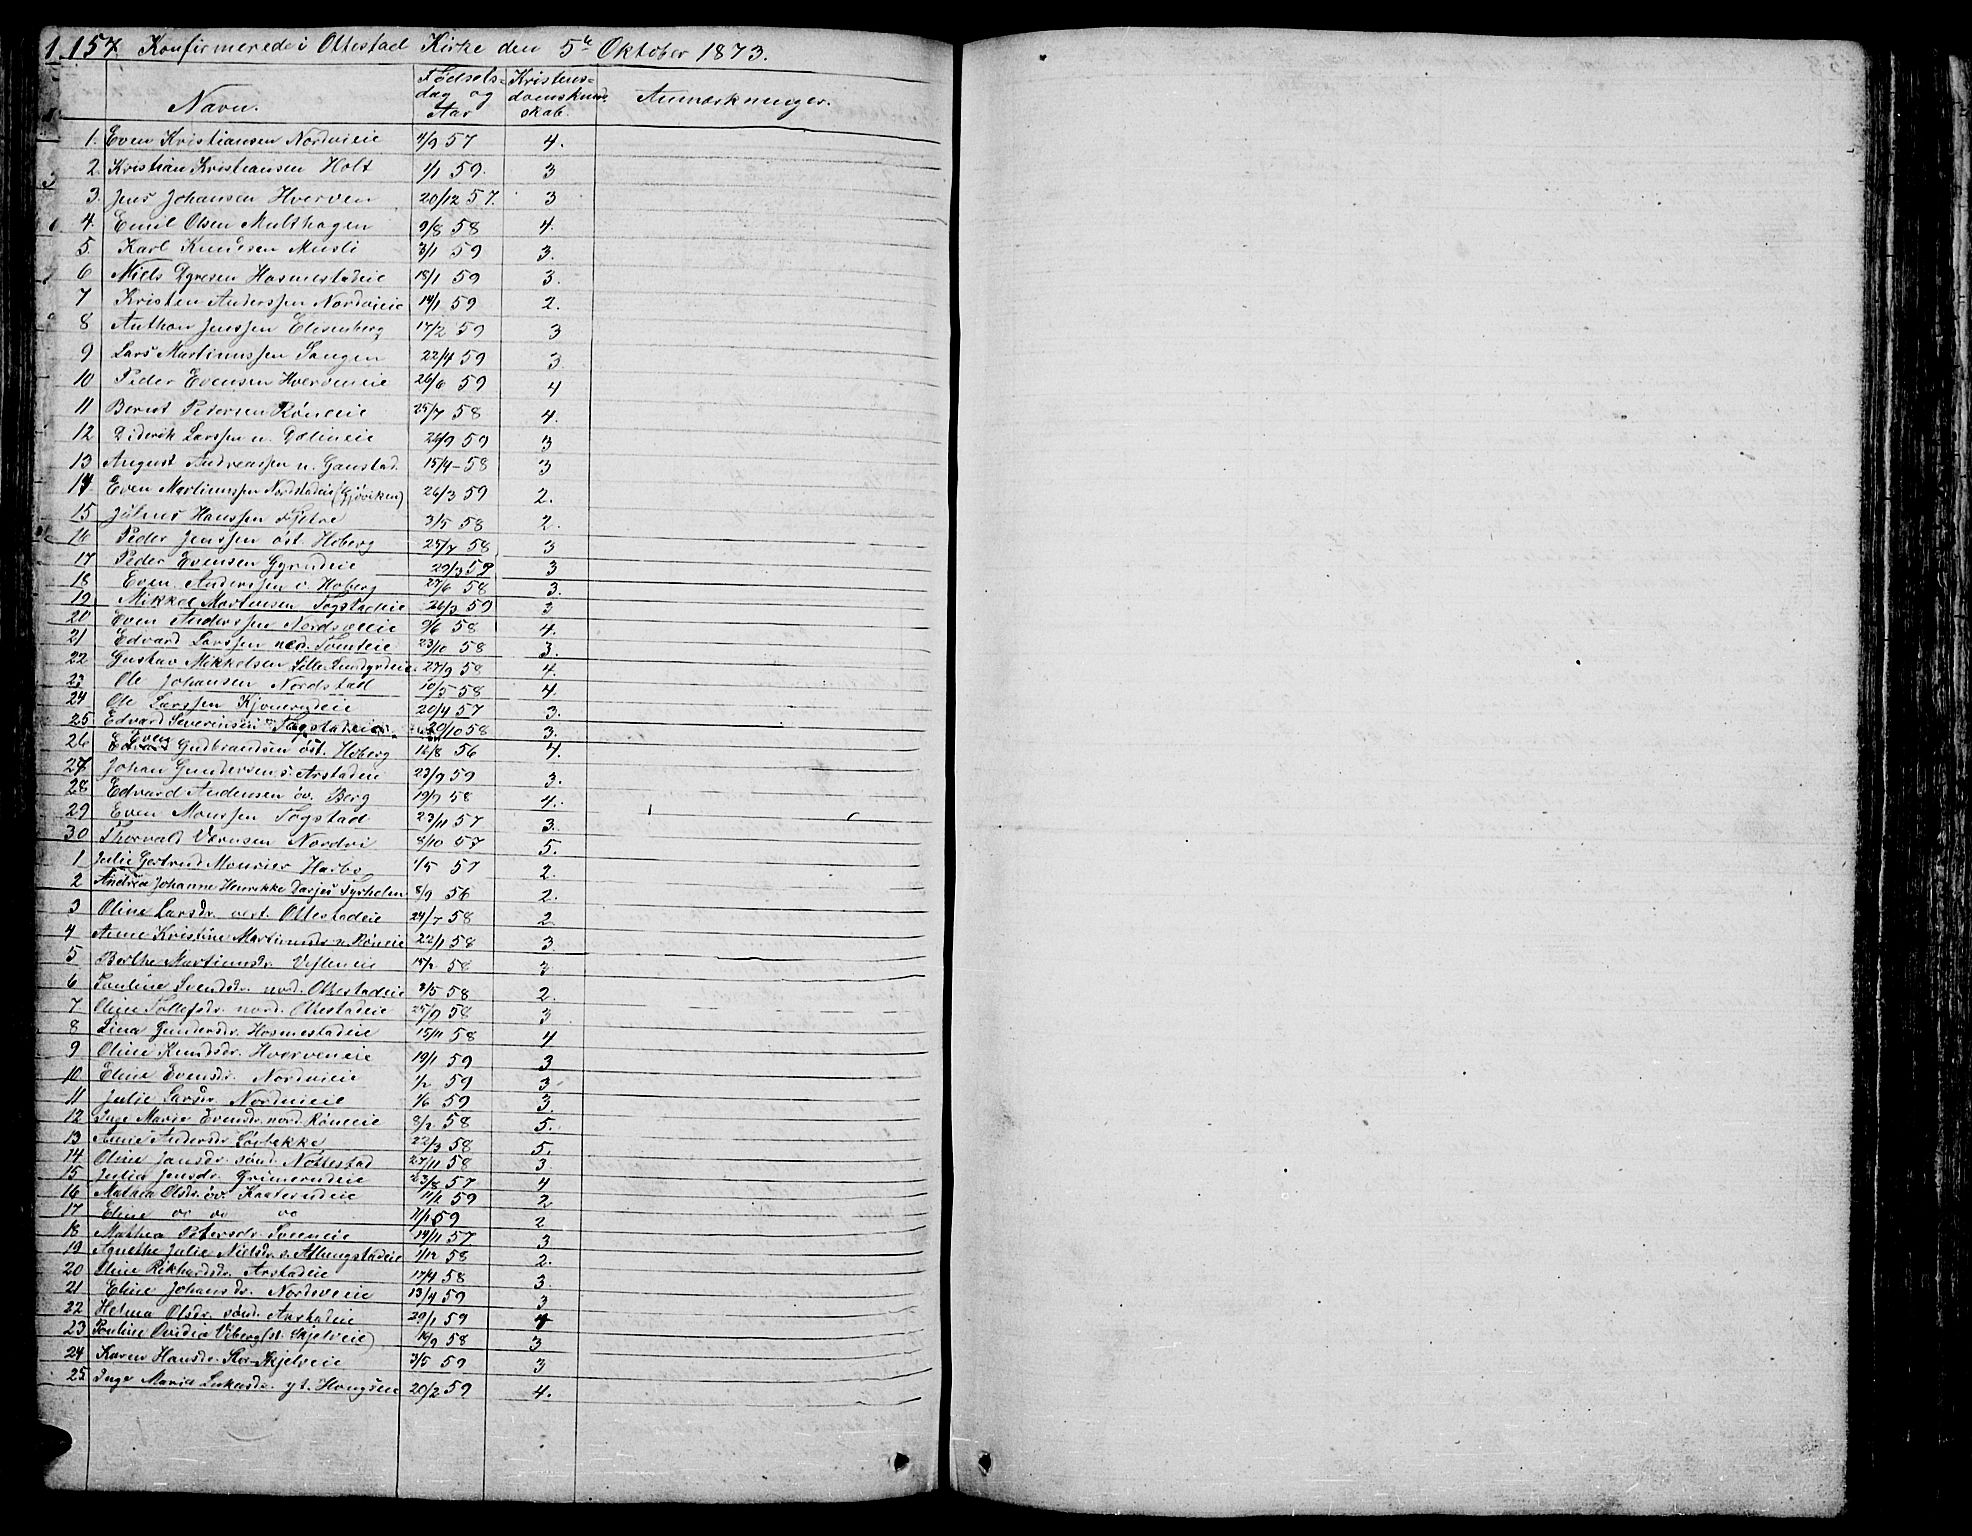 157. Konfirmerede i Ottestad Kirke den 5te Oktober 1873.
Navn. Fødsels- dag og Aar Kristens- domskund- skab. Anmærkninger.
1. Even Kristiansen Nordvieie 4/9 57 4.
2. Kristian Kristiansen Holt 1/1 59. 3
3. Jens Johansen Hverven 20/12 57. 3
4. Emil Olsen Multhagen 9/8 58 4.
5. Karl Knudsen Musli 3/1 59 3.
6 Niels Dyresen Hosmestadeie 18/1 59 3.
7 Kristen Anderssen Nordvieie 14/1 59 2.
8 Anthon Jenssen Elisenberg 17/2 59 3
9 Lars Martinussen Sangen 22/4 59 3
10 Peder Evensen Hverveneie 26/6 59 4
11 Bernt Pedersen Røneeie 25/7 58 4.
12 Diderik Larssen n. Dælineie 26/9 59 3
13 August Andreassen n. Gaustad. 15/4 58 3
14 Even Martinussen Nordstadeie (Gjøviken) 26/3 59 2.
15 Hanssen Fjetre 3/5 58 2.
16 Peder Jenssen øst. Hoberg 25/7 58 3
17 Peder Evensen Gyrudeie 29/3 59 3
18 Even Anderssen v. Hoberg 27/6 58 3.
19 Mikkel Martinsen Tøgstadeie 26/3 59 3
20 Even Anderssen 9/6 58 4.
21 Edvard Larssen ned. Tomteie 23/10 58 3.
22 Gustav Mikkelsen Lille 27/9 58 4.
23 Ole Johansen Nordstad 10/5 58 4.
24 Ole Larssen Kjonerudeie 20/4 57 3.
25 Edvard Severinsen Tøgstadeie 20/10 58 3.
26 Even Gudbrandsen øst. Hoberg 16/8 56 4.
27 Johan Gundersen s. Arstadeie 23/9 59 3.
28 Edvard Andersen øv. Berg 19/9 58 4.
29 Even Monssen Tøgstad 23/11 57 3.
30 Thorvald Nordvi 8/10 57 5.
1 Julie Gertrud Mourier Harbo 4/5 57 2.
2 Andrea Johanne Henrikke Darjes Tyrhelm 8/9 56 2.
3 Oline Larsdr. vest. Ottestadeie 24/7 58 2
4 Anne Kristine Martinusdr n. Røneeie 22/1 58 3
5 Berthe Martinusdr. 58 3
6 Pauline Svendsdr. nord. Ottestadeie 8/5 58 2.
7 Oline Tollefsdr. nord. Ottestadeie 25/9 58 3
8 Lina Gundersdr. Hosmestadeie 15/11 58 4
9 Oline Knudsdr. Hverveneie 19/1 59 3
10 Eline Evensdr. Nordvieie 1/2 59 3
11 Julie Larsdr Nordvieie 1/6 59 3.
12 Inge Marie Evensdr. nord. Røneeie 8/2 58 5.
13 Anne Andersdr Sørbekke 22/3 58 5.
14 Oline Jansdr. sønd. Nøttestad 27/11 58 3
15 Julia Jensdr. Grimerudeie 23/8 57 4
16 Mathea Olsdr. øv. Kaaterudeie 11/1 59 2
17 Eline do do do 11/1 59 2
18 Mathea Petersdr. 19/11 57 3
19 Agnethe Julie Nielsdr. s. Allungstadeie 1/12 58 2.
20 Oline Rikhardsdr. Arstadeie 17/4 58 3.
21 Eline Johansdr. Nordvieie 13/4 59 3
22 Helma Olsdr. sønd. Arstadeie 20/1 59 4
23 Pauline Ovidia Viberg (st. Skjelveie) 16/9 58 3
24 Karen Hansdr. Stor-Skjelveie 3/5 59 3
25 Inge Maria Lukasdr. yt. Hougseie 20/2 59 4.